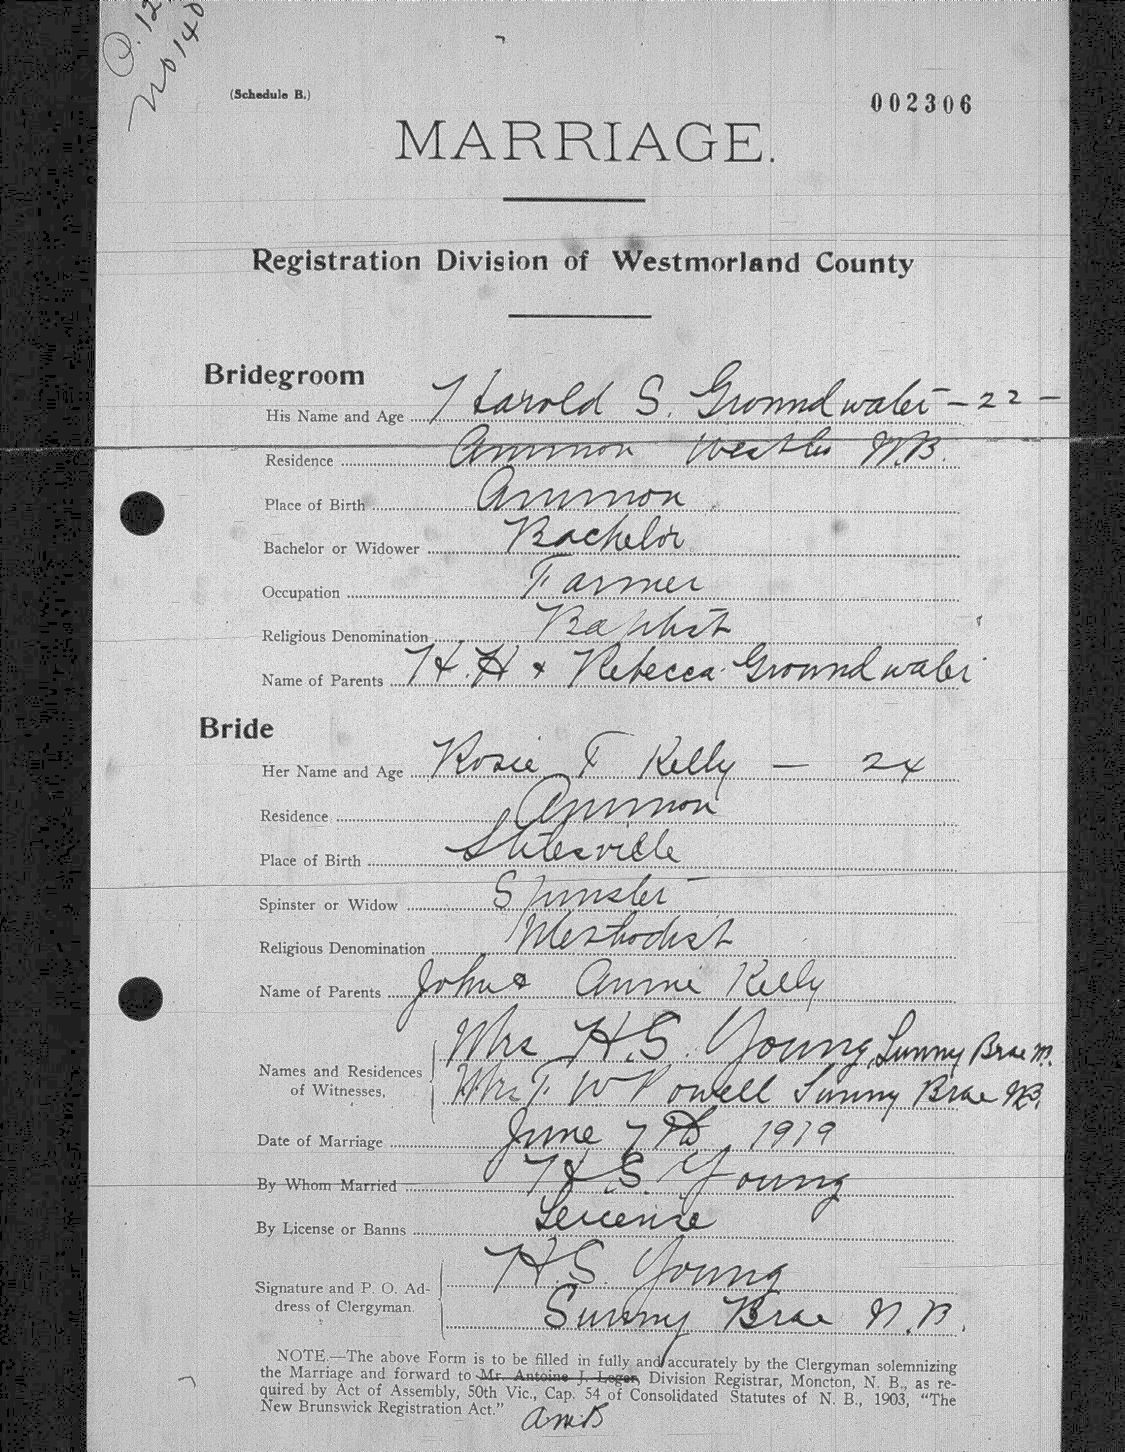 P. 12
No 140
(Schedule B.)
002306
MARRIAGE.
Registration Division of Westmorland County
Bridegroom
His Name and Age Harold S. Groundwater - 22 -
Residence Ammon N.B.
Place of Birth Ammon
Bachelor or Widower Bachelor
Occupation Farmer
Religious Denomination Baptist
Name of Parents H. H & Rebecca Groundwater
Bride
Her Name and Age Rosie F Kelly — 24
Residence Ammon
Place of Birth Stilesville
Spinster or Widow Spinster
Religious Denomination Methodist
Name of Parents John & Annie Kelly
Mrs H.S. Young, Sunny Brae
Names and Residences
of Witnesses,
Mrs F W Powell Sunny Brae N.B.
Date of Marriage June 7th, 1919
By Whom Married H.S. Young
By License or Banns
H.S. Young
Signature and P. O. Ad-
dress of Clergyman.
Sunny Brae N.B.
NOTE.—The above Form is to be filled in fully and accurately by the Clergyman solemnizing
the Marriage and forward to Mr. Antoine J. Leger, Division Registrar, Moncton, N. B., as re-
quired by Act of Assembly, 50th Vic., Cap. 54 of Consolidated Statutes of N. B., 1903, "The
New Brunswick Registration Act."